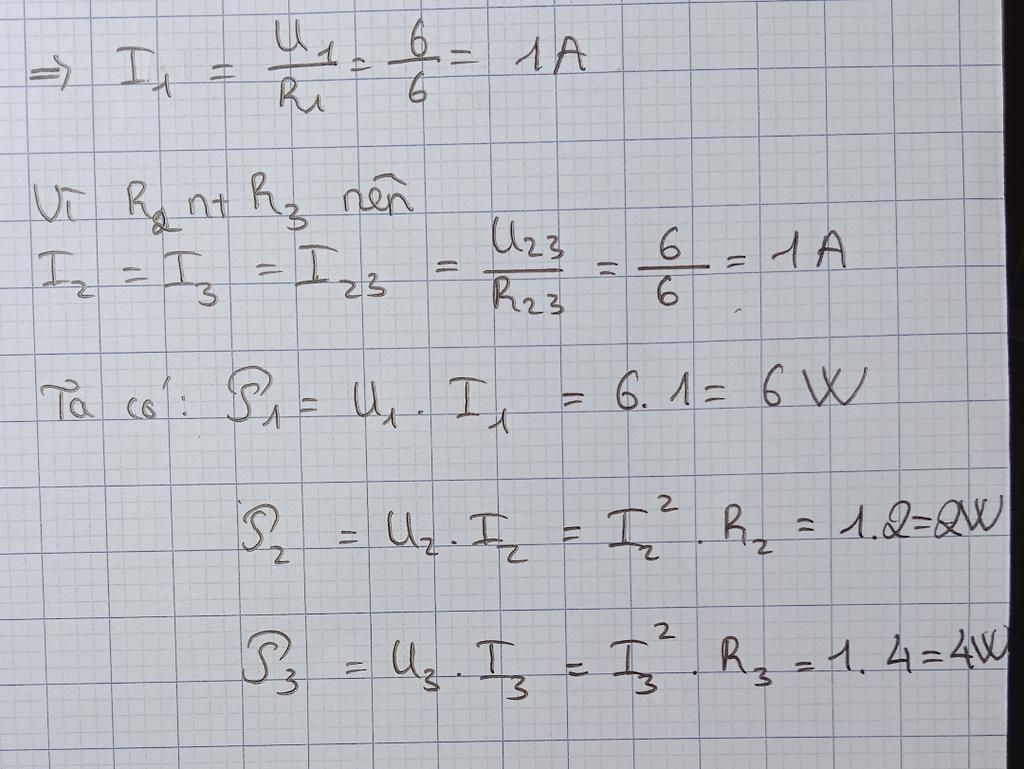 ⇒ I₁ = U₁/R₁ = 6/6 = 1A
Vì R₂ nt R₃ nên
I₂ = I₃ = I₂₃ = U₂₃/R₂₃ = 6/6 = 1A
Ta có: 𝒫₁ = U₁. I₁ = 6. 1 = 6 W
𝒫₂ = U₂. I₂ = I₂². R₂ = 1.2=2W
𝒫₃ = U₃. I₃ = I₃². R₃ = 1. 4=4W